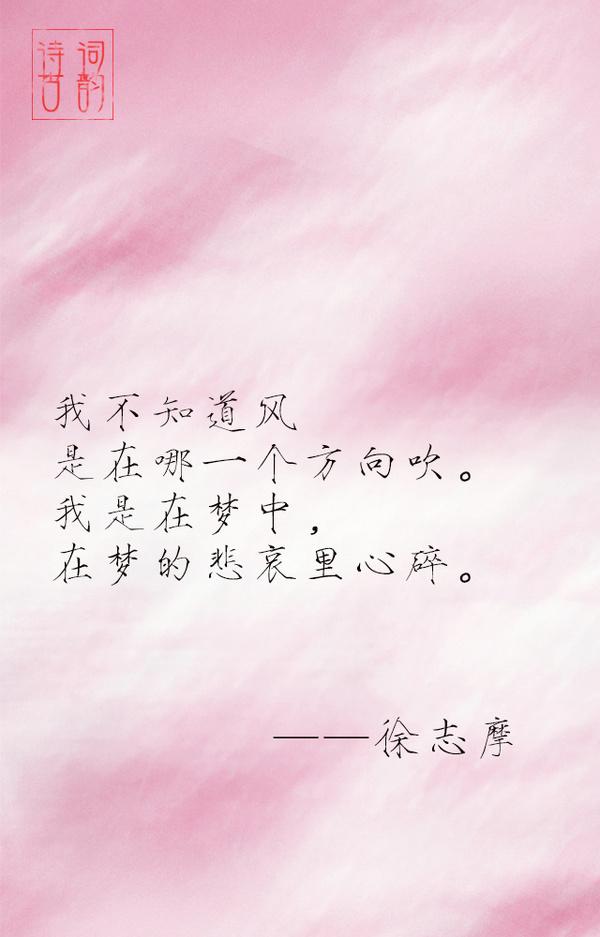 诗古
词韵
我不知道风
是在哪一个方向吹。
我是在梦中,
在梦的悲哀里心碎。
——徐志摩